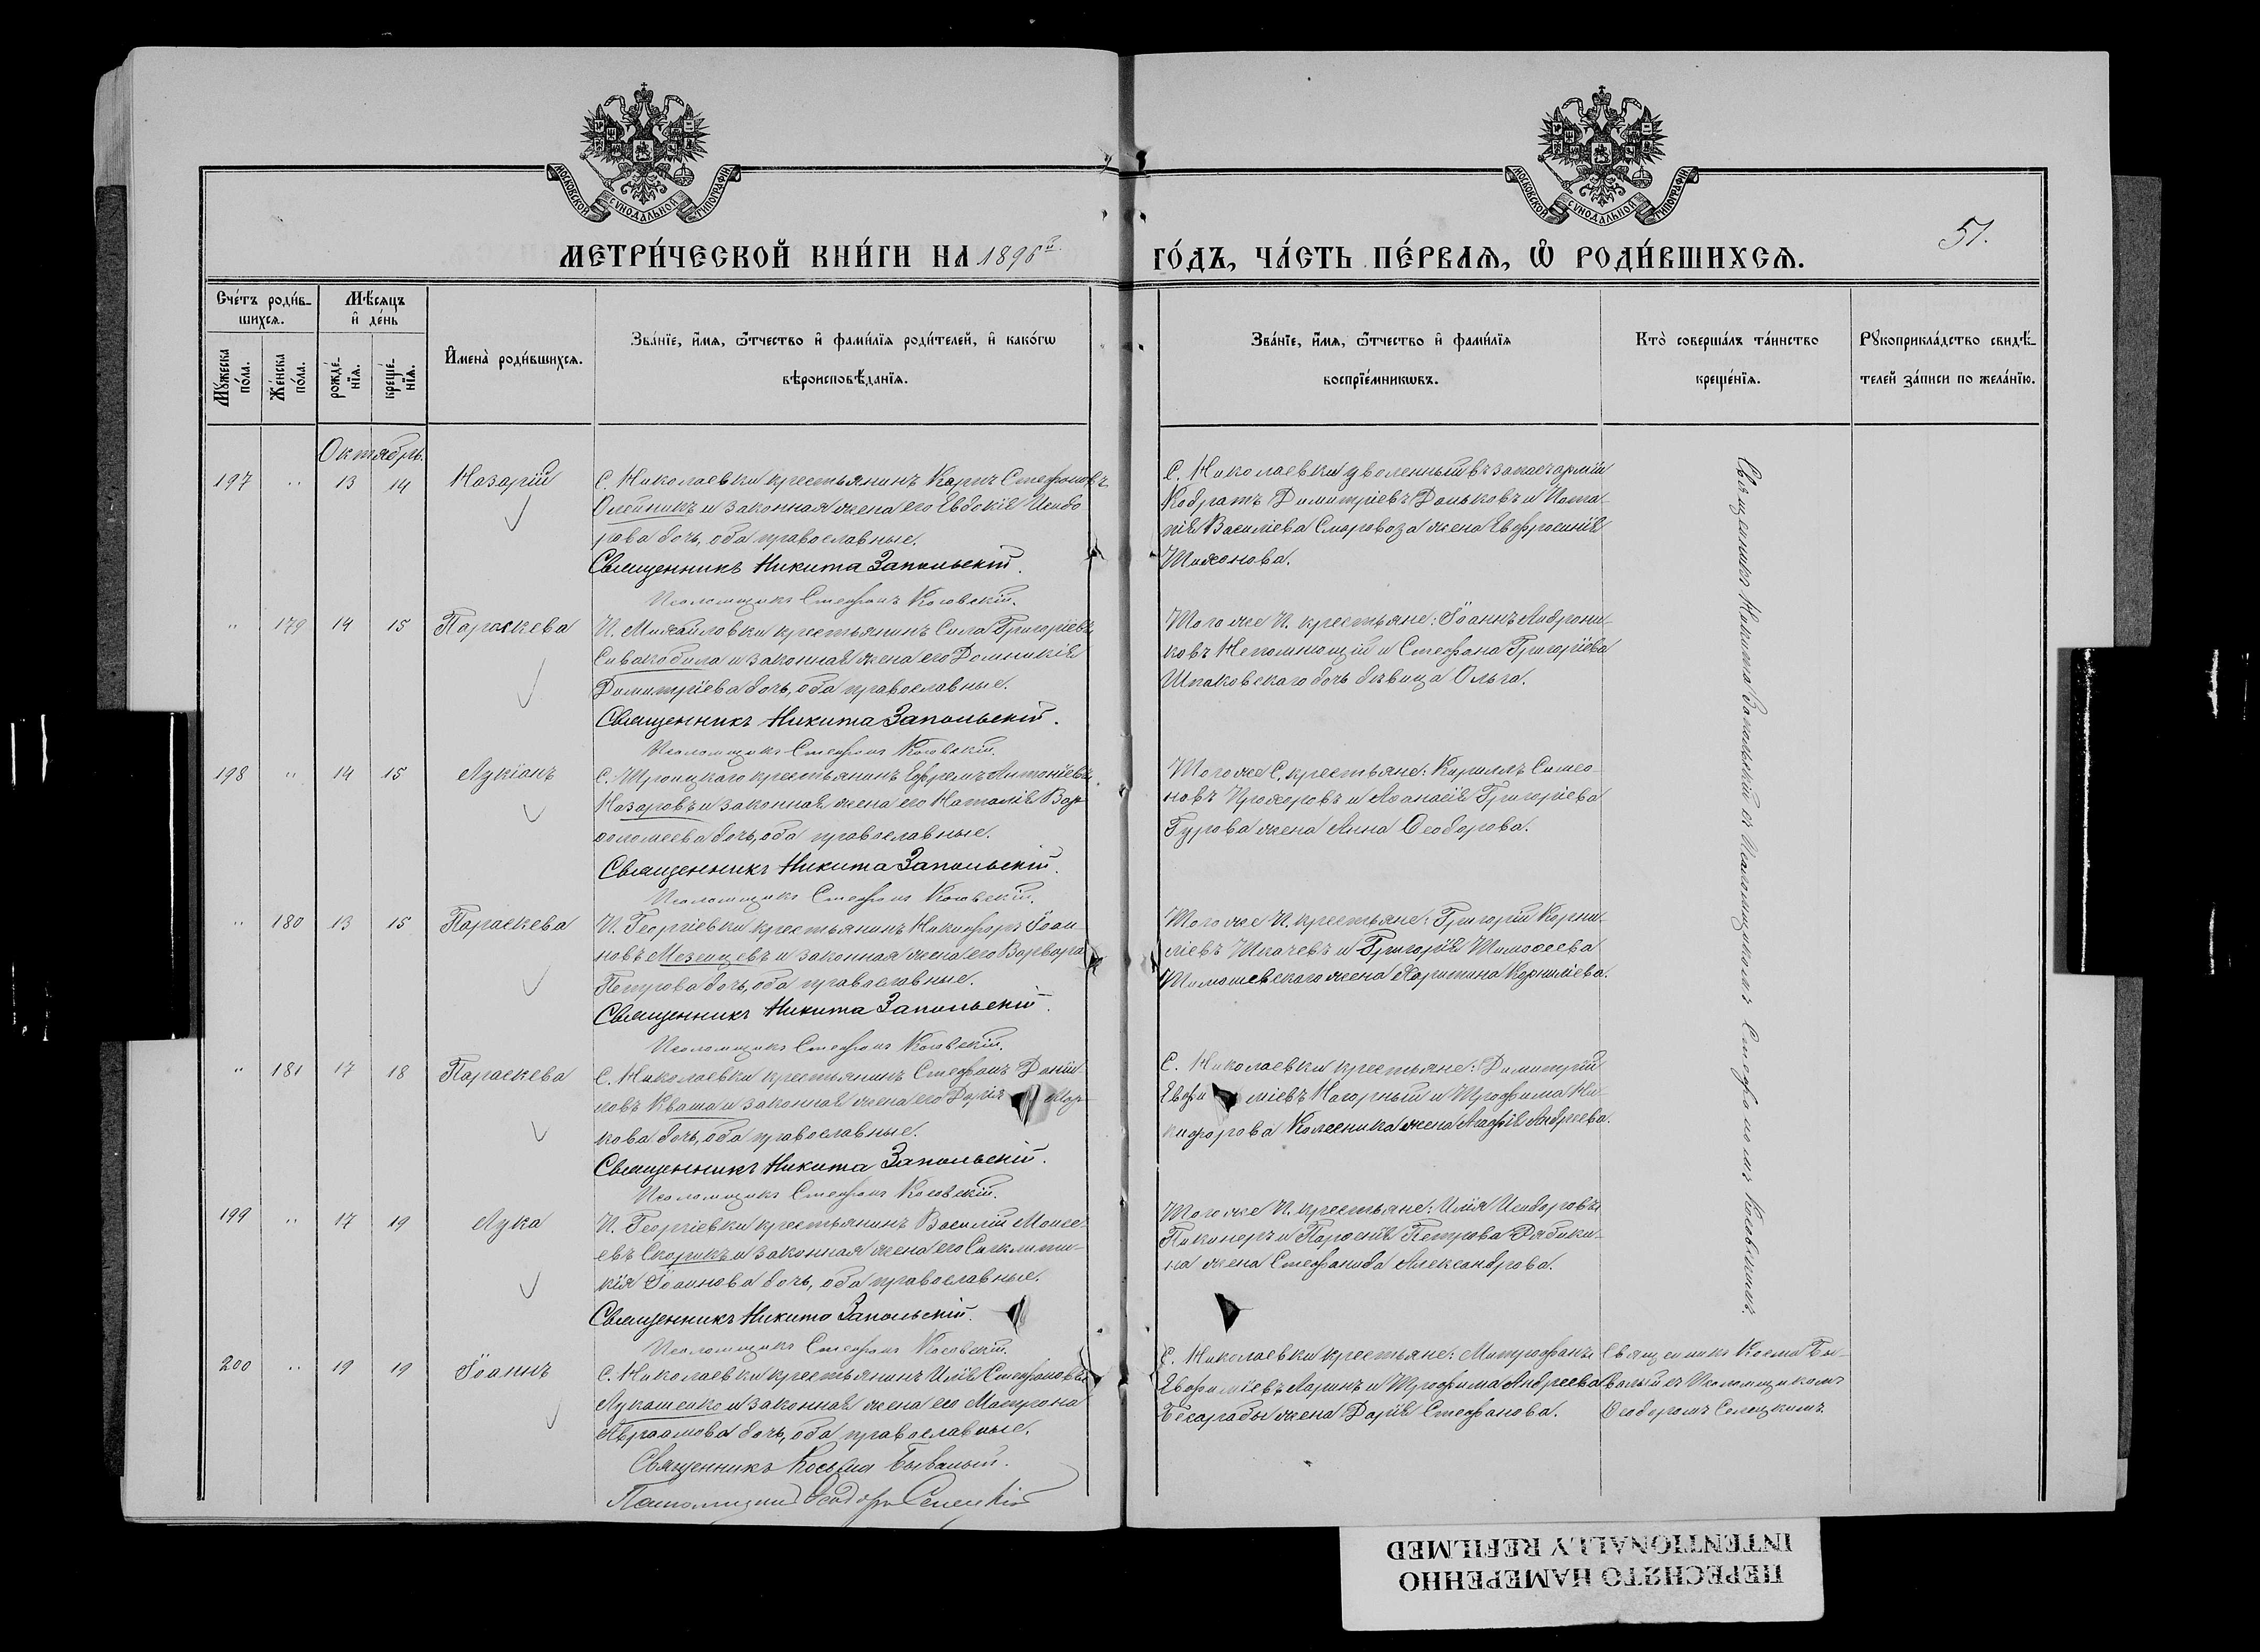 МОСКОВСКОЙ СѴНОДАЛЬНОЙ ТИПОГРАФІИ
МОСКОВСКОЙ СѴНОДАЛЬНОЙ ТИПОГРАФІИ
51.
МЕТРИ́ЧЕСКОЙ КНИ́ГИ НА 1896й ГО́ДЪ, ЧА́СТЬ ПЕ́РВАѦ, Ѡ҆ РОДИ́ВШИХСѦ.
Сче́тъ роди́в-
шихсѧ.
Мѣ́сѧцъ
и҆ де́нь
Мꙋ́жеска по́ла.
Же́нска по́ла.
рожде́-
нїѧ.
креще́-
нїѧ.
И҆мена̀ роди́вшихсѧ.
Зва́нїе, и҆́мѧ, ѻ҆́тчество и҆ фами́лїѧ роди́телей, и҆ како́гѡ
вѣроисповѣ́данїѧ.
Зва́нїе, и҆́мѧ, ѻ҆́тчество и҆ фами́лїѧ
воспрїе́мникѡвъ.
Кто̀ соверша́лъ та́инство
креще́нїѧ.
Рꙋкоприкла́дство свидѣ́-
телей за́писи по жела́нїю.
Октябрь.
197 " 13 14 Назарій
С. Николаевки крестьянинъ Карпъ Стефановъ
Олейникъ и законная жена его Евдокія Исидо
рова дочь, оба православные.
Священникъ Никита Запольскій.
Псаломщикъ Стефанъ Косовскій.
С. Николаевки уволенный въ запасъ арміи
Кодратъ Димитріевъ Доньковъ и Игна-
тія Василіева Сморовоза жена Евфросинія
Тихонова.
" 179 14 15 Параскева
П. Михайловки крестьянинъ Сила Григоріевъ
Сивакобыла и законная жена его Домникія
Димитріева дочь, оба православные.
Священникъ Никита Запольскій.
Псаломщикъ Стефанъ Косовскій.
Того же П. крестьяне: Іоаннъ Андрони-
ковъ Непомнющій и Стефана Григоріева
Шпаковскаго дочь девица Ольга.
198 " 14 15 Лукіанъ
С. Троицкаго крестьянинъ Ефремъ Антоніевъ
Назаровъ и законная жена его Наталія Вар-
ѳоломеева дочь, оба православные.
Священникъ Никита Запольскій.
Псаломщикъ Стефанъ Косовскій.
Того же С. крестьяне: Кириллъ Симео-
новъ Прохоровъ и Аѳанасія Григоріева
Гурова жена Анна Ѳеодорова.
" 180 13 15 Параскева
П. Георгіевки крестьянинъ Никифоръ Іоан-
новъ Мезенцевъ и законная жена его Варвара
Петрова дочь, оба православные.
Священникъ Никита Запольскій.
Псаломщикъ Стефанъ Косовскій.
Того же П. крестьяне: Григорій Корни-
ліевъ Ткачевъ и Григорія Тимоѳеева
Тимошевскаго жена Харитина Корниліева.
" 181 17 18 Параскева
С. Николаевки крестьянинъ Стефанъ Даніи-
ловъ Кваша и законная жена его Дарія Мар-
кова дочь, оба православные.
Священникъ Никита Запольскій.
Псаломщикъ Стефанъ Косовскій.
С. Николаевки крестьяне: Димитрій
Евфи міевъ Нагорный и Трофима Ни-
кифорова Колесника жена Агафія Андреева.
199 " 17 19 Лука
П. Георгіевки крестьянинъ Василій Моисе-
евъ Скорикъ и законная жена его Синклити-
кія Іоаннова дочь, оба православные.
Священникъ Никита Запольскій.
Псаломщикъ Стефанъ Косовскій.
Того же П. крестьяне: Илія Исидоровъ
Пикинеръ и Парѳенія Петрова Рябики-
на жена Стефанида Александрова.
Священникъ Никита Запольскій съ Псаломщикомъ Стефаномъ Косовскимъ.
200 " 19 19 Іоаннъ
С. Николаевки крестьянинъ Илія Стефановъ
Лукашенко и законная жена его Матрона
Авраамова дочь, оба православные.
Священникъ Косьма Бывалый.
Псаломщикъ Ѳеодоръ Селецкій
С. Николаевки крестьяне: Митрофанъ
Евфиміевъ Ларинъ и Трофима Андреева
Бекарабы жена Дарія Стефанова.
Священникъ Косма Бы-
валый съ Псаломщикомъ
Ѳеодоромъ Селецкимъ.
ПЕРЕСНЯТО НАМЕРЕННО
INTENTIONALLY REFILMED